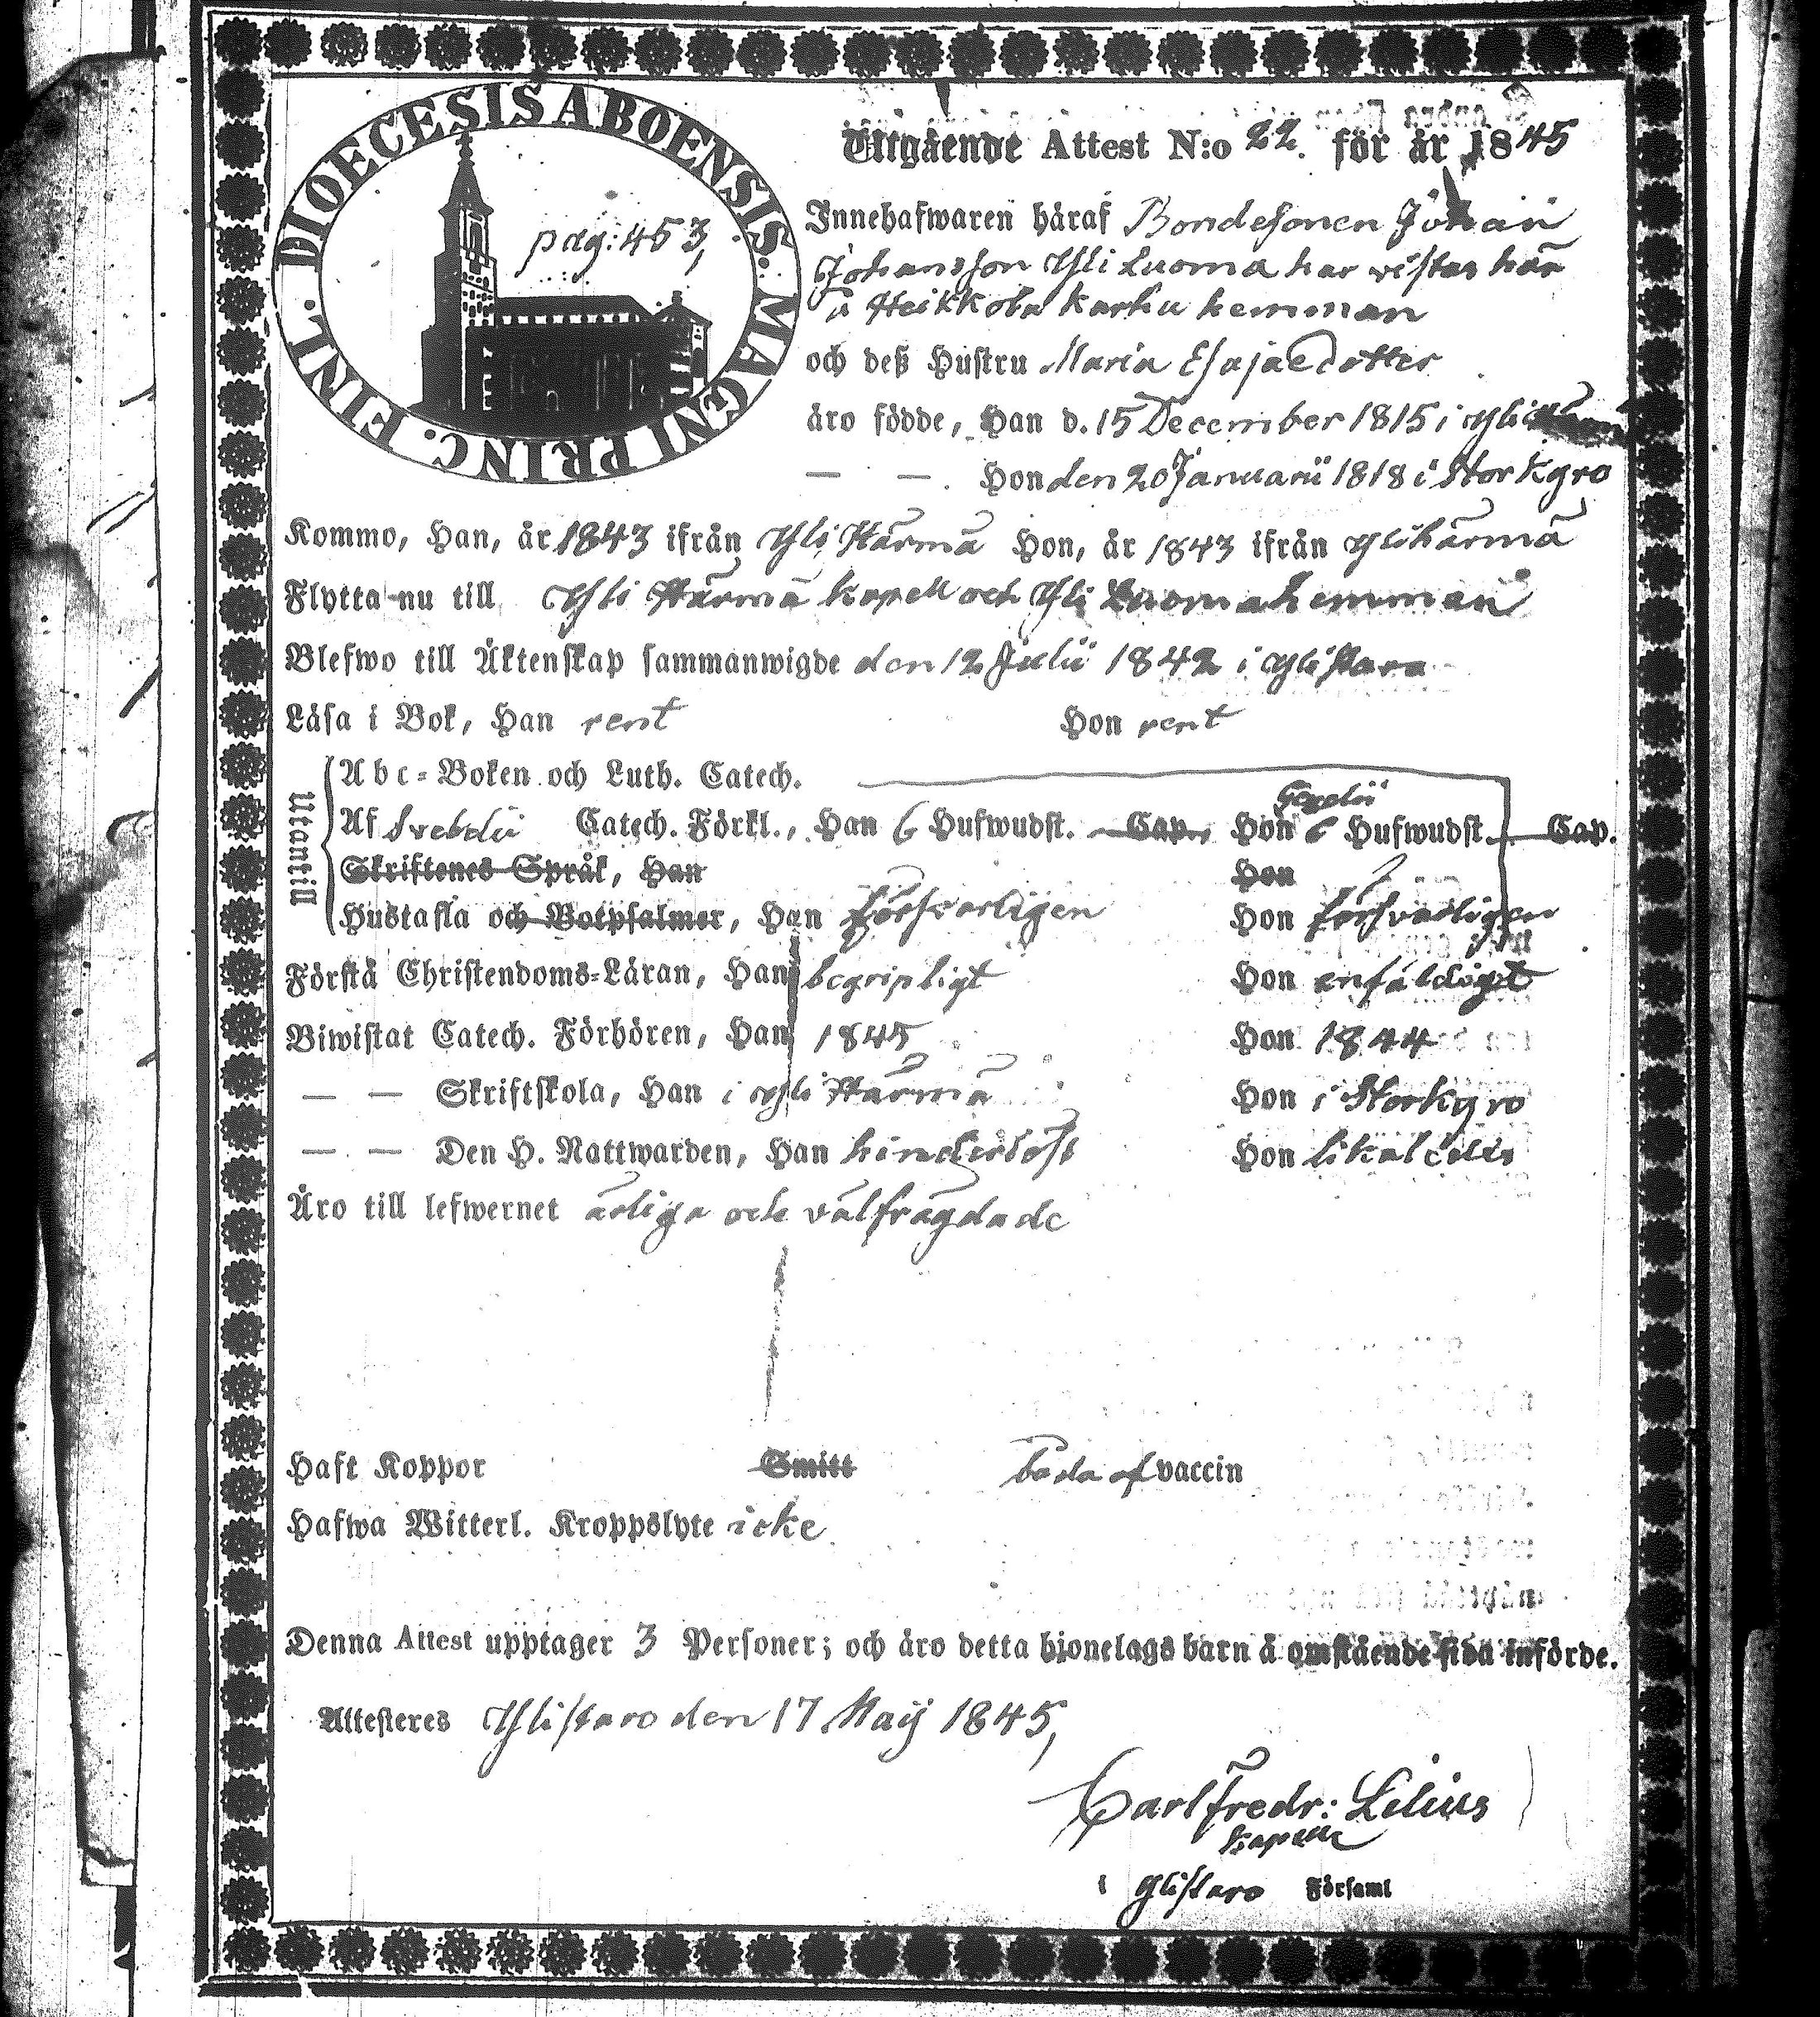 DIOECESIS ABOENSIS. MAGNI PRINC. FINL.
pag: 453,
Utgående Attest N:o 22. för år 1845
Innehafwaren häraf Bondesonen Johan
Johansson Yli Luoma har vistas här
å Heikkola Karhu hemman
och deß Hustru Maria Esajaedotter
äro födde, Han d. 15 December 1815 i Yli
— — . Hon den 20 Januarii 1818 i Storkyro
Kommo, Han, år 1843 ifrån Yli Härmä Hon, år 1843 ifrån Ylihärmä
Flytta nu till Yli Härmä kapell och Yli Luoma hemman
Blefwo till Äktenskap sammanwigde den 12 Julii 1842 i Ylistaro
Läsa i Bok, Han rent Hon rent
Utantill
Abc-Boken och Luth. Catech.
Af Svebelii Catech. Förkl., Han 6 Hufwudst. Cap., Hon 6 Hufwudst. Cap.
Skriftenes Språk, Han Hon
Hustafla och Botpsalmer, Han försvarligen Hon försvarligen
Förstå Christendoms-Läran, Han begripligt Hon enfaldigt
Biwistat Catech. Förhören, Han 1845 Hon 1844
— — Skriftskola, Han i Yli Härmä Hon i Storkyro
— — Den H. Nattwarden, Han hinderlöst Hon likaledes
Äro till lefwernet ärliga och välfrägdade
Haft Koppor Smitt båda af vaccin
Hafwa Witterl. Kroppslyte icke
Denna Attest upptager 3 Personer; och äro detta hjonelags barn å omstående sida införde.
Attesteres Ylistaro den 17 Maij 1845,
Carl Fredr: Lilius
Kapell
i Ylistaro Församl